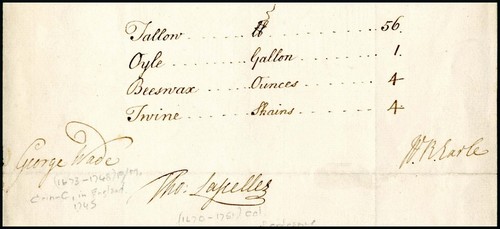 Tallow ........ ℔ ........ 56.
Oyle ........ Gallon ........ 1.
Beeswax ........ Ounces ........ 4
Twine ........ Skains ........ 4
George Wade
Wm. R. Earle
(1673-1748)
C-in-C, in England
1745
Tho. Lascelles
(1670-1751) Col